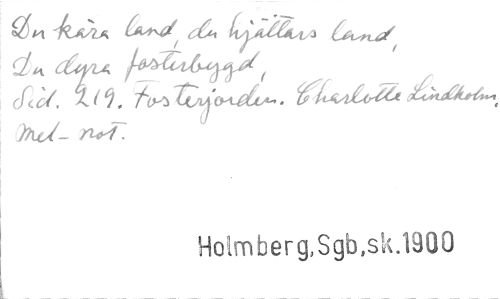 Du kära land, du hjältars land,
Du dyra fosterbygd,
Sid. 219. Fosterjorden. Charlotte Lindholm.
Mel-not.
Holmberg,Sgb,sk.1900